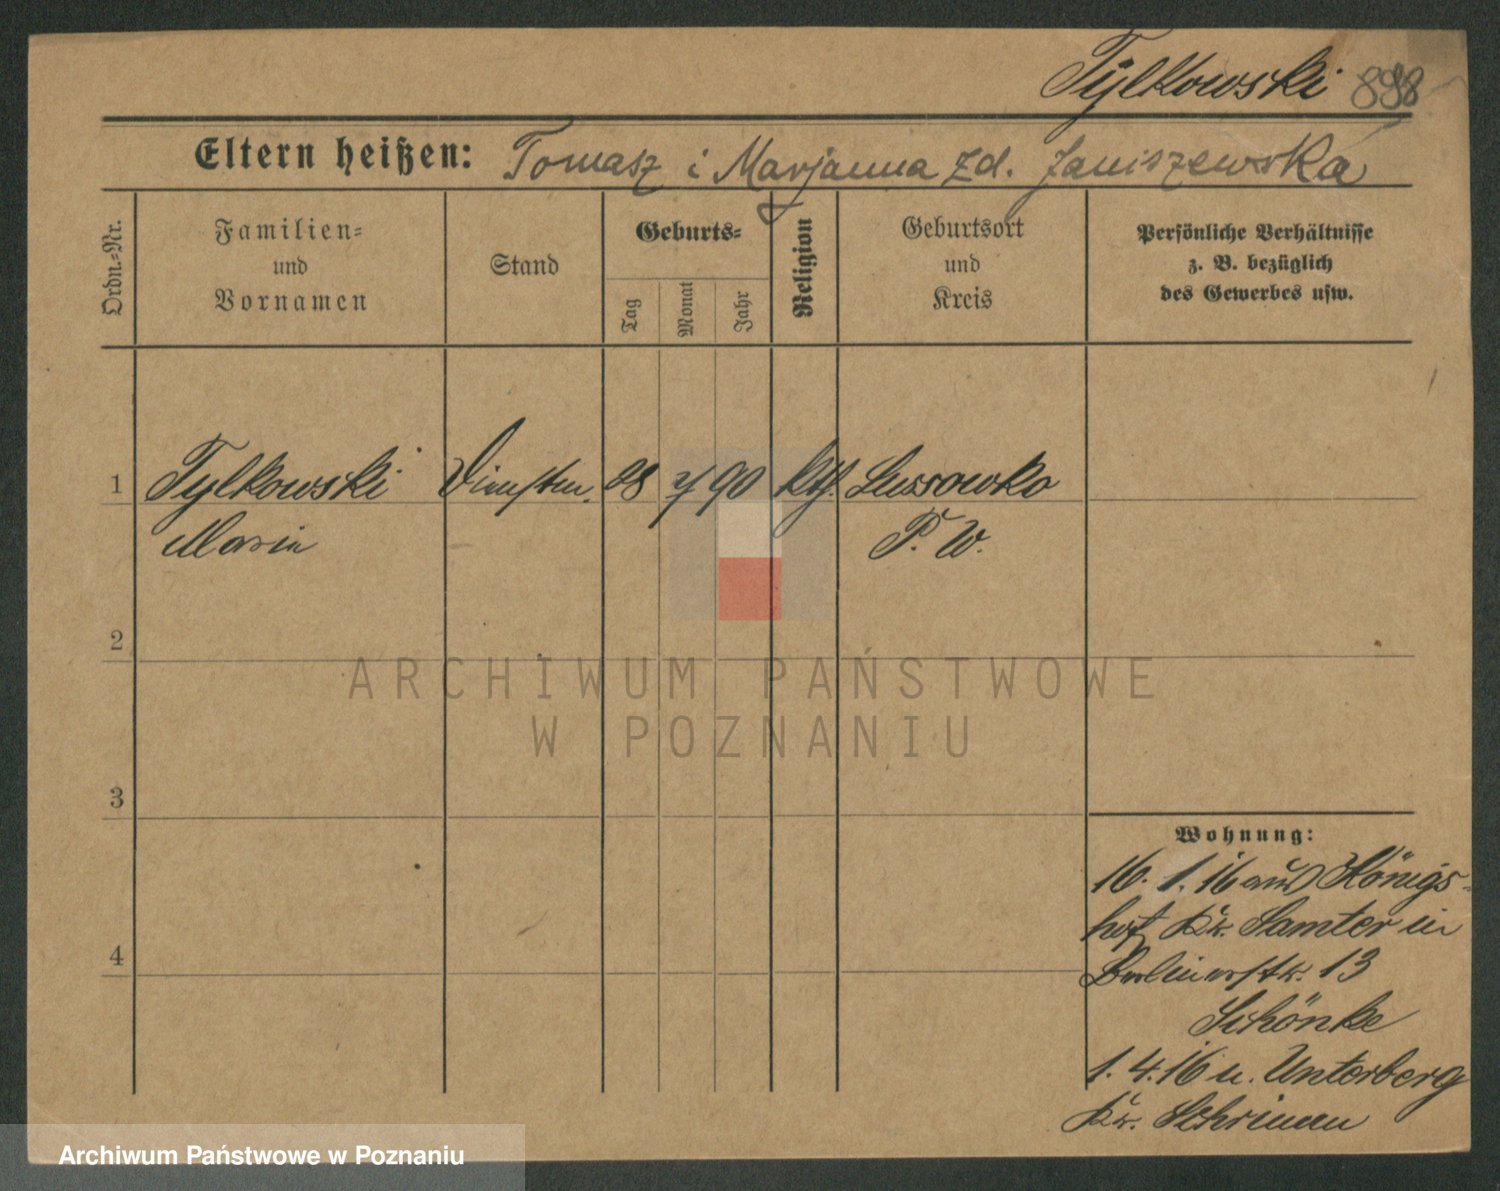 Tylkowski 898
Eltern heißen: Tomasz i Marjanna zd. Janiszewska
Ordn.-Nr.
Familien-
und
Vornamen
Stand
Geburts-
Tag
Monat
Jahr
Religion
Geburtsort
und
Kreis
Persönliche Verhältnisse
z. B. bezüglich
des Gewerbes usw.
1 Tylkowski Dienstm. 28 7 90 kth. Lussowko
Maria P. W.
2
3
4
Wohnung:
16. 1. 16 aus Königs-
hof Kr. Samter in
Berlinerstr. 13
Schönke
1. 4. 16 n. Unterberg
Kr. Schrimm
ARCHIWUM PAŃSTWOWE
W POZNANIU
Archiwum Państwowe w Poznaniu